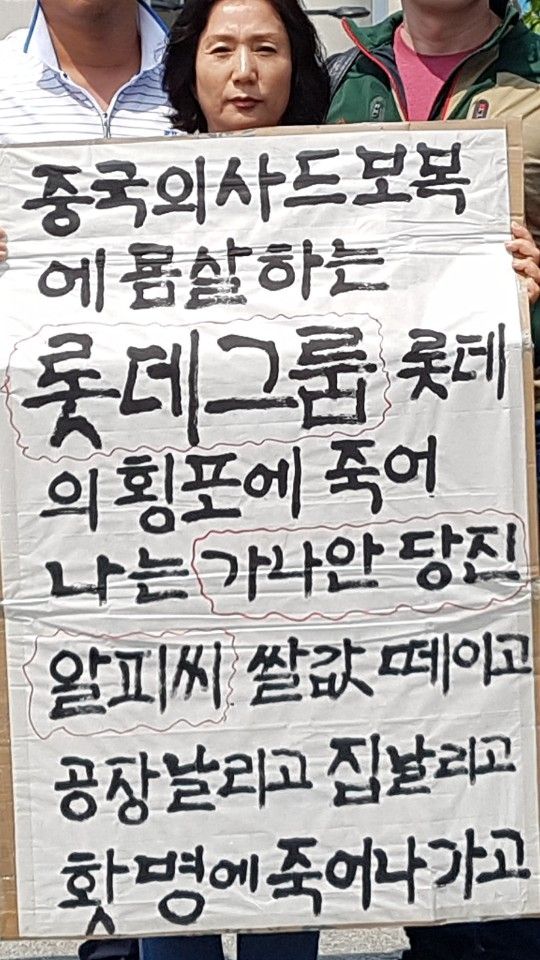 중국의사드보복
에몸살하는
롯데그룹 롯데
의횡포에 죽어
나는 가나안 당진
알피씨 쌀값 떼이고
공장날리고 집날리고
홧병에죽어나가고